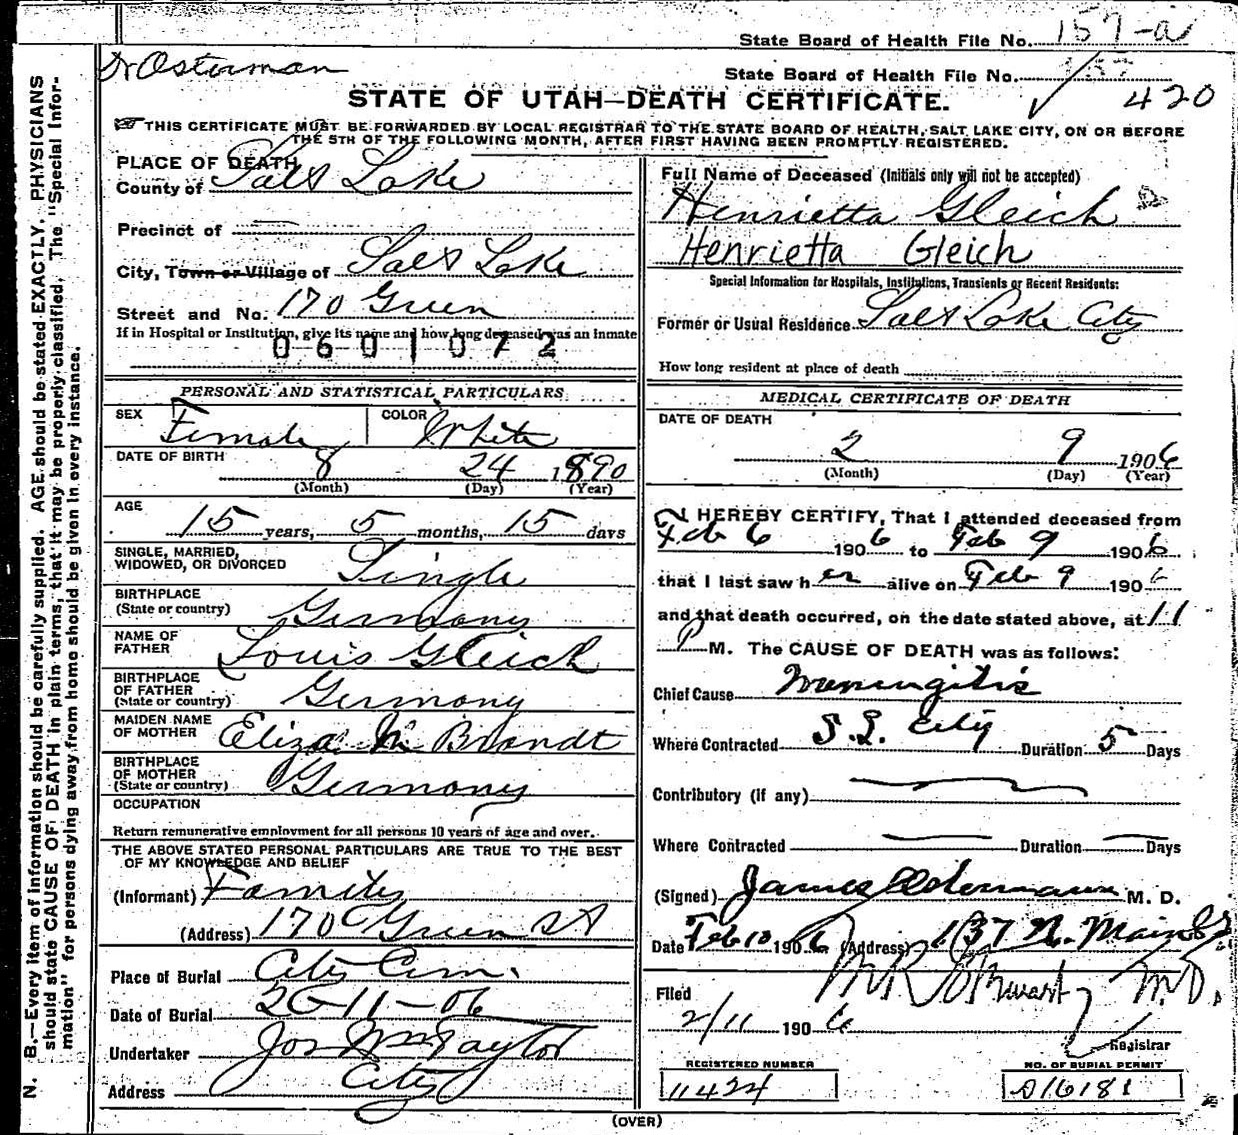 State Board of Health File No. 157-a
Dr Osterman
State Board of Health File No. 157
420
STATE OF UTAH—DEATH CERTIFICATE.
THIS CERTIFICATE MUST BE FORWARDED BY LOCAL REGISTRAR TO THE STATE BOARD OF HEALTH, SALT LAKE CITY, ON OR BEFORE
THE 5TH OF THE FOLLOWING MONTH, AFTER FIRST HAVING BEEN PROMPTLY REGISTERED.
N. B.—Every item of information should be carefully supplied. AGE should be stated EXACTLY. PHYSICIANS
should state CAUSE OF DEATH in plain terms, that it may be properly classified. The "Special Infor-
mation" for persons dying away from home should be given in every instance.
PLACE OF DEATH
County of Salt Lake
Precinct of —
City, Town or Village of Salt Lake
Street and No. 170 Green
If in Hospital or Institution, give its name and how long deceased was an inmate
0601072
PERSONAL AND STATISTICAL PARTICULARS
SEX Female COLOR White
DATE OF BIRTH 8 24 1890
(Month) (Day) (Year)
AGE
15 years, 5 months, 15 days
SINGLE, MARRIED,
WIDOWED, OR DIVORCED Single
BIRTHPLACE
(State or country) Germany
NAME OF
FATHER Louis Gleich
BIRTHPLACE
OF FATHER
(State or country) Germany
MAIDEN NAME
OF MOTHER Eliza M Brandt
BIRTHPLACE
OF MOTHER
(State or country) Germany
OCCUPATION
Return remunerative employment for all persons 10 years of age and over.
THE ABOVE STATED PERSONAL PARTICULARS ARE TRUE TO THE BEST
OF MY KNOWLEDGE AND BELIEF
(Informant) Family
(Address) 170 Green St
Place of Burial City Cem.
Date of Burial 2-11-06
Undertaker Jos Wm Taylor
Address City
Full Name of Deceased (Initials only will not be accepted)
Henrietta Gleich
Henrietta Gleich
Special Information for Hospitals, Institutions, Transients or Recent Residents:
Former or Usual Residence Salt Lake City
How long resident at place of death
MEDICAL CERTIFICATE OF DEATH
DATE OF DEATH
2 9 1906
(Month) (Day) (Year)
I HEREBY CERTIFY, That I attended deceased from
Feb 6 1906 to Feb 9 1906
that I last saw her alive on Feb 9 1906
and that death occurred, on the date stated above, at 11
P M. The CAUSE OF DEATH was as follows:
Chief Cause Meningitis
Where Contracted S.L. City Duration 5 Days
Contributory (if any) —
Where Contracted — Duration — Days
(Signed) James Ostermann M. D.
Date Feb 10 1906 (Address) 137 N. Main St
M R Stewart M.D.
Filed
2/11 1906
Registrar
REGISTERED NUMBER
11424
NO. OF BURIAL PERMIT
D16181
(OVER)